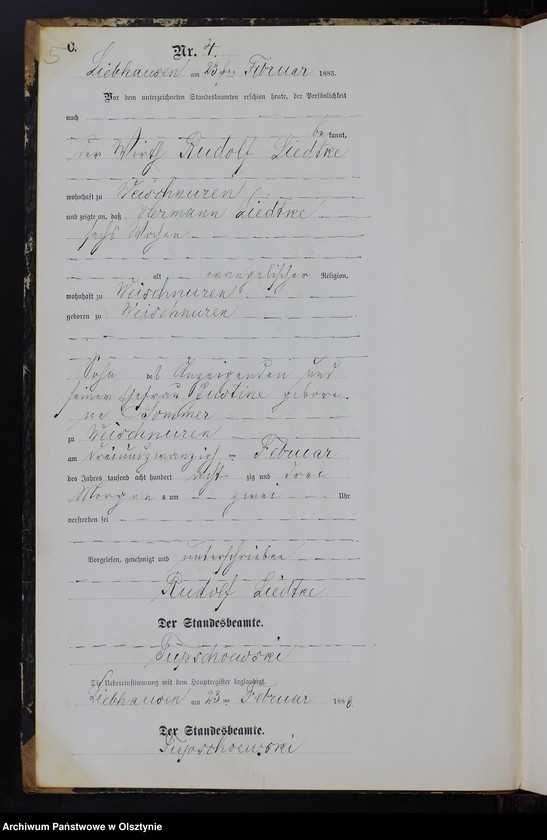 5
C.
Nr. 4.
Liebhausen am 23ten Februar 1883.
Vor dem unterzeichneten Standesbeamten erschien heute, der Persönlichkeit
nach
be kannt,
der Wirth Rudolf Liedtke
wohnhaft zu Weischnuren
und zeigte an, daß Hermann Liedtke
sechs Wochen
alt evangelischer Religion,
wohnhaft zu Weischnuren
geboren zu Weischnuren
Sohn des Anzeigenden und
seiner Ehefrau Justine gebore-
ne Sommer
zu Weischnuren
am dreiundzwanzigsten Februar
des Jahres tausend acht hundert acht zig und drei
Morgens um zwei Uhr
verstorben sei
Vorgelesen, genehmigt und unterschrieben
Rudolf Liedtke
Der Standesbeamte.
Die Uebereinstimmung mit dem Hauptregister beglaubigt.
Liebhausen am 23ten Februar 1883
Der Standesbeamte.
Archiwum Państwowe w Olsztynie